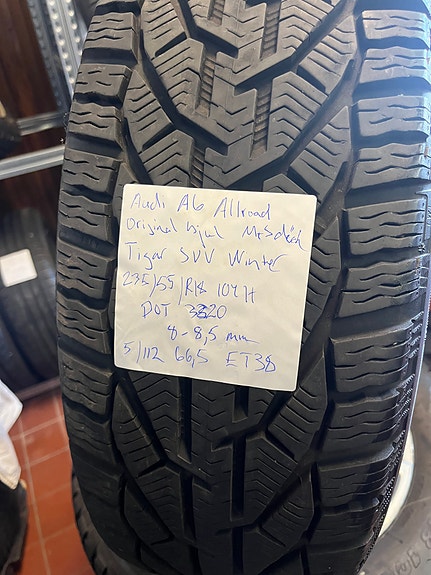 Audi A6 Allroad
original hjul m+s däck
Tigar SUV Winter
235/55/R18 104H
DOT 3320
8-8,5 mm
5/112 66,5 ET38